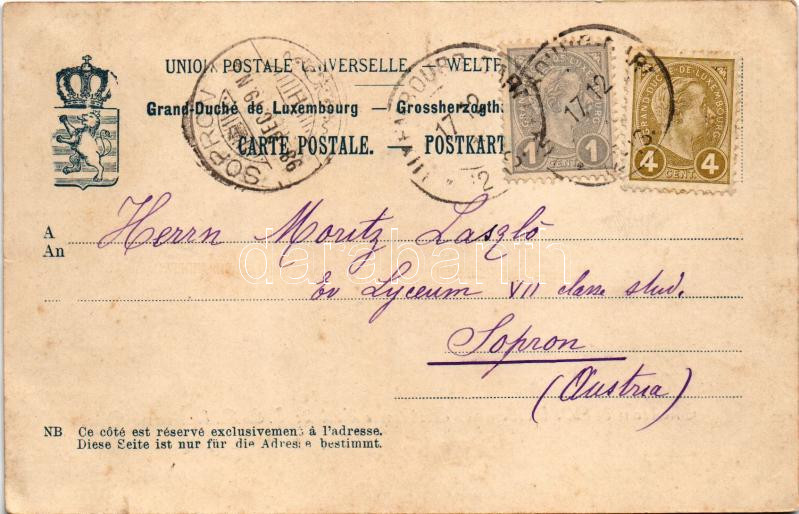 UNION POSTALE UNIVERSELLE. — WELTP
Grand-Duché de Luxembourg — Grossherzogth
CARTE POSTALE. — POSTKART
SOPRON
17.12
17.12
GRAND-DUCHÉ-DE-LUXEMBOURG
1 1
CENT.
4 4
CENT.
A Herrn Moritz László
An
Ev Lyceum VII classe stud.
Sopron
(Austria)
darabanth
NB Ce côté est réservé exclusivement à l'adresse.
Diese Seite ist nur für die Adresse bestimmt.